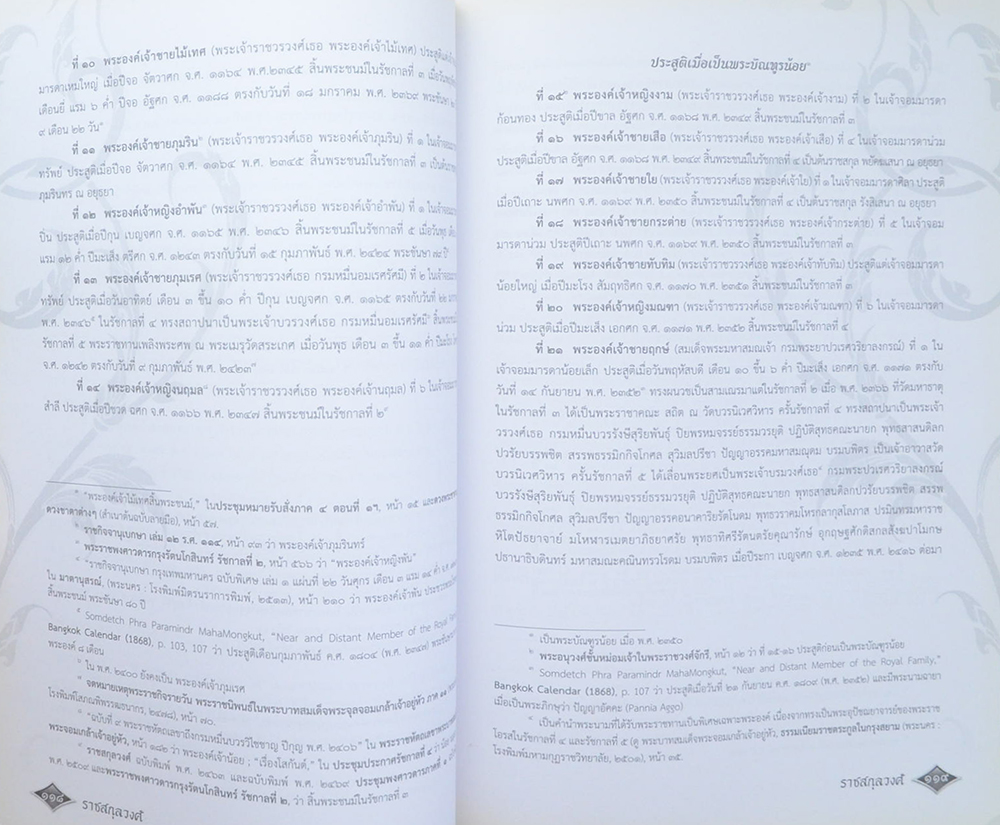 ที่ ๑๐ พระองค์เจ้าชายไม้เทศ (พระเจ้าราชวรวงศ์เธอ พระองค์เจ้าไม้เทศ) ประสูติแต่เจ้า
มารดาเหมใหญ่ เมื่อปีจอ จัตวาศก จ.ศ. ๑๑๖๔ พ.ศ.๒๓๔๕ สิ้นพระชนม์ในรัชกาลที่ ๓ เมื่อวันพุธ
เดือนยี่ แรม ๖ ค่ำ ปีจอ อัฐศก จ.ศ. ๑๑๘๘ ตรงกับวันที่ ๑๘ มกราคม พ.ศ. ๒๓๖๙ พระชันษา ๒
๙ เดือน ๒๒ วัน
ที่ ๑๑ พระองค์เจ้าชายภุมริน (พระเจ้าราชวรวงศ์เธอ พระองค์เจ้าภุมริน) ที่ ๑ ในเจ้าจอมมารดา
ทรัพย์ ประสูติเมื่อปีจอ จัตวาศก จ.ศ. ๑๑๖๔ พ.ศ. ๒๓๔๕ สิ้นพระชนม์ในรัชกาลที่ ๓ เป็นต้นราช
ภุมรินทร ณ อยุธยา
ที่ ๑๒ พระองค์เจ้าหญิงอำพัน (พระเจ้าราชวรวงศ์เธอ พระองค์เจ้าอำพัน) ที่ ๑ ในเจ้าจอม
ปิ่น ประสูติเมื่อปีกุน เบญจศก จ.ศ. ๑๑๖๕ พ.ศ. ๒๓๔๖ สิ้นพระชนม์ในรัชกาลที่ ๕ เมื่อวันพุธ เดือน
แรม ๑๒ ค่ำ ปีมะเส็ง ตรีศก จ.ศ. ๑๒๔๓ ตรงกับวันที่ ๑๕ กุมภาพันธ์ พ.ศ. ๒๔๒๔ พระชันษา ๗๙ ปี
ที่ ๑๓ พระองค์เจ้าชายภุมเรศ (พระเจ้าราชวรวงศ์เธอ กรมหมื่นอมเรศรัศมี) ที่ ๒ ในเจ้าจอม
ทรัพย์ ประสูติเมื่อวันอาทิตย์ เดือน ๓ ขึ้น ๑๐ ค่ำ ปีกุน เบญจศก จ.ศ. ๑๑๖๕ ตรงกับวันที่ ๒๒
พ.ศ. ๒๓๔๖ ในรัชกาลที่ ๔ ทรงสถาปนาเป็นพระเจ้าบวรวงศ์เธอ กรมหมื่นอมเรศรัศมี สิ้นพระชนม์
รัชกาลที่ ๕ พระราชทานเพลิงพระศพ ณ พระเมรุวัดสระเกศ เมื่อวันพุธ เดือน ๓ ขึ้น ๑๑ ค่ำ
จ.ศ. ๑๒๔๒ ตรงกับวันที่ ๙ กุมภาพันธ์ พ.ศ. ๒๔๒๓
ที่ ๑๔ พระองค์เจ้าหญิงนฤมล (พระเจ้าราชวรวงศ์เธอ พระองค์เจ้านฤมล) ที่ ๖ ในเจ้าจอมมารดา
สำลี ประสูติเมื่อปีชวด ฉศก จ.ศ. ๑๑๖๖ พ.ศ. ๒๓๔๗ สิ้นพระชนม์ในรัชกาลที่ ๒
"พระองค์เจ้าไม้เทศสิ้นพระชนม์," ในประชุมหมายรับสั่งภาค ๔ ตอนที่ ๑ฯ, หน้า ๑๕ และ
ดวงชาตาต่างๆ (สำเนาต้นฉบับลายมือ), หน้า ๕๗.
ราชกิจจานุเบกษา เล่ม ๑๒ ร.ศ. ๑๑๔, หน้า ๙๓ ว่า พระองค์เจ้าภุมรินทร์
พระราชพงศาวดารกรุงรัตนโกสินทร์ รัชกาลที่ ๒, หน้า ๕๖๖ ว่า "พระองค์เจ้าหญิงพัน"
"ราชกิจจานุเบกษา กรุงเทพมหานคร ฉบับพิเศษ เล่ม ๑ แผ่นที่ ๒๒ วันศุกร เดือน ๓ แรม ๑๔ ค่ำ
ใน มาดานุสรณ์, (พระนคร : โรงพิมพ์มิตรนราการพิมพ์, ๒๕๑๓), หน้า ๒๑๐ ว่า พระองค์เจ้าพัน ประชวร
สิ้นพระชนม์ พระชันษา ๘๐ ปี
Somdetch Phra Paramindr MahaMongkut, "Near and Distant Member of the Royal
Bangkok Calendar (1868), p. 103, 107 ว่า ประสูติเดือนกุมภาพันธ์ ค.ศ. ๑๘๐๔ (พ.ศ. ๒๓๔๗)
พระองค์ ๘ เดือน
ใน พ.ศ. ๒๔๐๐ ยังคงเป็น พระองค์เจ้าภุมเรศ
จดหมายเหตุพระราชกิจรายวัน พระราชนิพนธ์ในพระบาทสมเด็จพระจุลจอมเกล้าเจ้าอยู่หัว ภาค ๑๑
โรงพิมพ์โสภณพิพรรฒธนากร, ๒๔๗๘), หน้า ๗๐.
"ฉบับที่ ๙ พระราชหัตถเลขาถึงกรมหมื่นบวรวิไชยชาญ ปีกุญ พ.ศ. ๒๔๐๖" ใน
พระจอมเกล้าเจ้าอยู่หัว, หน้า ๑๘๒ ว่า พระองค์เจ้าน้อย ; "เรื่องโสกันต์," ใน ประชุมประกาศรัชกาลที่ ๔
ราชสกุลวงศ์ ฉบับพิมพ์ พ.ศ. ๒๔๖๓ และฉบับพิมพ์ พ.ศ. ๒๔๖๙ ประชุมพงศาวดารภาคที่ ๑
พ.ศ. ๒๕๐๙ และพระราชพงศาวดารกรุงรัตนโกสินทร์ รัชกาลที่ ๒, ว่า สิ้นพระชนม์ในรัชกาลที่ ๓
๑๑๘ ราชสกุลวงศ์
ประสูติเมื่อเป็นพระบัณฑูรน้อย
ที่ ๑๕ พระองค์เจ้าหญิงงาม (พระเจ้าราชวรวงศ์เธอ พระองค์เจ้างาม) ที่ ๒ ในเจ้าจอมมารดา
ก้อนทอง ประสูติเมื่อปีขาล อัฐศก จ.ศ. ๑๑๖๘ พ.ศ. ๒๓๔๙ สิ้นพระชนม์ในรัชกาลที่ ๓
ที่ ๑๖ พระองค์เจ้าชายเสือ (พระเจ้าราชวรวงศ์เธอ พระองค์เจ้าเสือ) ที่ ๔ ในเจ้าจอมมารดาน่วม
ประสูติเมื่อปีขาล อัฐศก จ.ศ. ๑๑๖๘ พ.ศ. ๒๓๔๙ สิ้นพระชนม์ในรัชกาลที่ ๔ เป็นต้นราชสกุล พยัคฆเสนา ณ อยุธยา
ที่ ๑๗ พระองค์เจ้าชายใย (พระเจ้าราชวรวงศ์เธอ พระองค์เจ้าใย) ที่ ๑ ในเจ้าจอมมารดาศิลา ประสูติ
เมื่อปีเถาะ นพศก จ.ศ. ๑๑๖๙ พ.ศ. ๒๓๕๐ สิ้นพระชนม์ในรัชกาลที่ ๔ เป็นต้นราชสกุล รังสิเสนา ณ อยุธยา
ที่ ๑๘ พระองค์เจ้าชายกระต่าย (พระเจ้าราชวรวงศ์เธอ พระองค์เจ้ากระต่าย) ที่ ๕ ในเจ้าจอม
มารดาน่วม ประสูติปีเถาะ นพศก จ.ศ. ๑๑๖๙ พ.ศ. ๒๓๕๐ สิ้นพระชนม์ในรัชกาลที่ ๓
ที่ ๑๙ พระองค์เจ้าชายทับทิม (พระเจ้าราชวรวงศ์เธอ พระองค์เจ้าทับทิม) ประสูติแต่เจ้าจอมมารดา
น้อยใหญ่ เมื่อปีมะโรง สัมฤทธิศก จ.ศ. ๑๑๗๐ พ.ศ. ๒๓๕๑ สิ้นพระชนม์ในรัชกาลที่ ๓
ที่ ๒๐ พระองค์เจ้าหญิงมณฑา (พระเจ้าราชวรวงศ์เธอ พระองค์เจ้ามณฑา) ที่ ๖ ในเจ้าจอมมารดา
น่วม ประสูติเมื่อปีมะเส็ง เอกศก จ.ศ. ๑๑๗๑ พ.ศ. ๒๓๕๒ สิ้นพระชนม์ในรัชกาลที่ ๔
ที่ ๒๑ พระองค์เจ้าชายฤกษ์ (สมเด็จพระมหาสมณเจ้า กรมพระยาปวเรศวริยาลงกรณ์) ที่ ๑ ใน
เจ้าจอมมารดาน้อยเล็ก ประสูติเมื่อวันพฤหัสบดี เดือน ๑๐ ขึ้น ๖ ค่ำ ปีมะเส็ง เอกศก จ.ศ. ๑๑๗๑ ตรงกับ
วันที่ ๑๔ กันยายน พ.ศ. ๒๓๕๒ ทรงผนวชเป็นสามเณรมาแต่ในรัชกาลที่ ๒ เมื่อ พ.ศ. ๒๓๖๖ ที่วัดมหาธาตุ
ในรัชกาลที่ ๓ ได้เป็นพระราชาคณะ สถิต ณ วัดบวรนิเวศวิหาร ครั้นรัชกาลที่ ๔ ทรงสถาปนาเป็นพระเจ้า
วรวงศ์เธอ กรมหมื่นบวรรังษีสุริยพันธุ์ ปิยพรหมจรรย์ธรรมวรยุติ ปฏิบัติสุทธคณะนายก พุทธสาสนดิลก
ปวรัยบรรพชิต สรรพธรรมมิกกิจโกศล สุวิมลปรีชา ปัญญาอรรคมหาสมณุตม บรมบพิตร เป็นเจ้าอาวาสวัด
บวรนิเวศวิหาร ครั้งรัชกาลที่ ๕ ได้เลื่อนพระยศเป็นพระเจ้าบรมวงศ์เธอ กรมพระปวเรศวริยาลงกรณ์
บวรรังษีสุริยพันธุ์ ปิยพรหมจรรย์ธรรมวรยุติ ปฏิบัติสุทธคณะนายก พุทธสาสนดิลกปวรัยบรรพชิต สรรพ
ธรรมมิกกิจโกศล สุวิมลปรีชา ปัญญาอรรคอนาคาริยรัตโนดม พุทธวราคมโหรกลากุสโลภาส ปรมินทรมหาราช
หิโตปัธยาจาริย์ มโหฬารเมตยาภิธยาศรัย พุทธาทิศรีรัตนตรัยคุณารักษ์ อุกฤษฐศักดิสกลสังฆปาโมกษ
ปธานาธิบดินทร์ มหาสมณะคณินทรวโรดม บรมบพิตร เมื่อปีระกา เบญจศก จ.ศ. ๑๒๓๕ พ.ศ. ๒๔๑๖ ต่อมา
เป็นพระบัณฑูรน้อย เมื่อ พ.ศ. ๒๓๕๐
พระอนุวงศ์ชั้นหม่อมเจ้าในพระราชวงศ์จักรี, หน้า ๑๒ ว่า ที่ ๑๕-๑๖ ประสูติก่อนเป็นพระบัณฑูรน้อย
Somdetch Phra Paramindr MahaMongkut, "Near and Distant Member of the Royal Family,"
Bangkok Calendar (1868), p. 107 ว่า ประสูติเมื่อวันที่ ๒๑ กันยายน ค.ศ. ๑๘๐๙ (พ.ศ. ๒๓๕๒) และมีพระนามฉายา
เมื่อเป็นพระภิกษุว่า ปัญญาอัคคะ (Pannia Aggo)
เป็นคำนำพระนามที่ได้รับพระราชทานเป็นพิเศษเฉพาะพระองค์ เนื่องจากทรงเป็นอุปัชฌายาจารย์ของพระราช
โอรสในรัชกาลที่ ๔ และรัชกาลที่ ๕ (ดู พระบาทสมเด็จพระจอมเกล้าเจ้าอยู่หัว, ธรรมเนียมราชตระกูลในกรุงสยาม (พระนคร :
โรงพิมพ์มหามกุฏราชวิทยาลัย, ๒๕๐๑), หน้า ๓๕.
ราชสกุลวงศ์ ๑๑๙